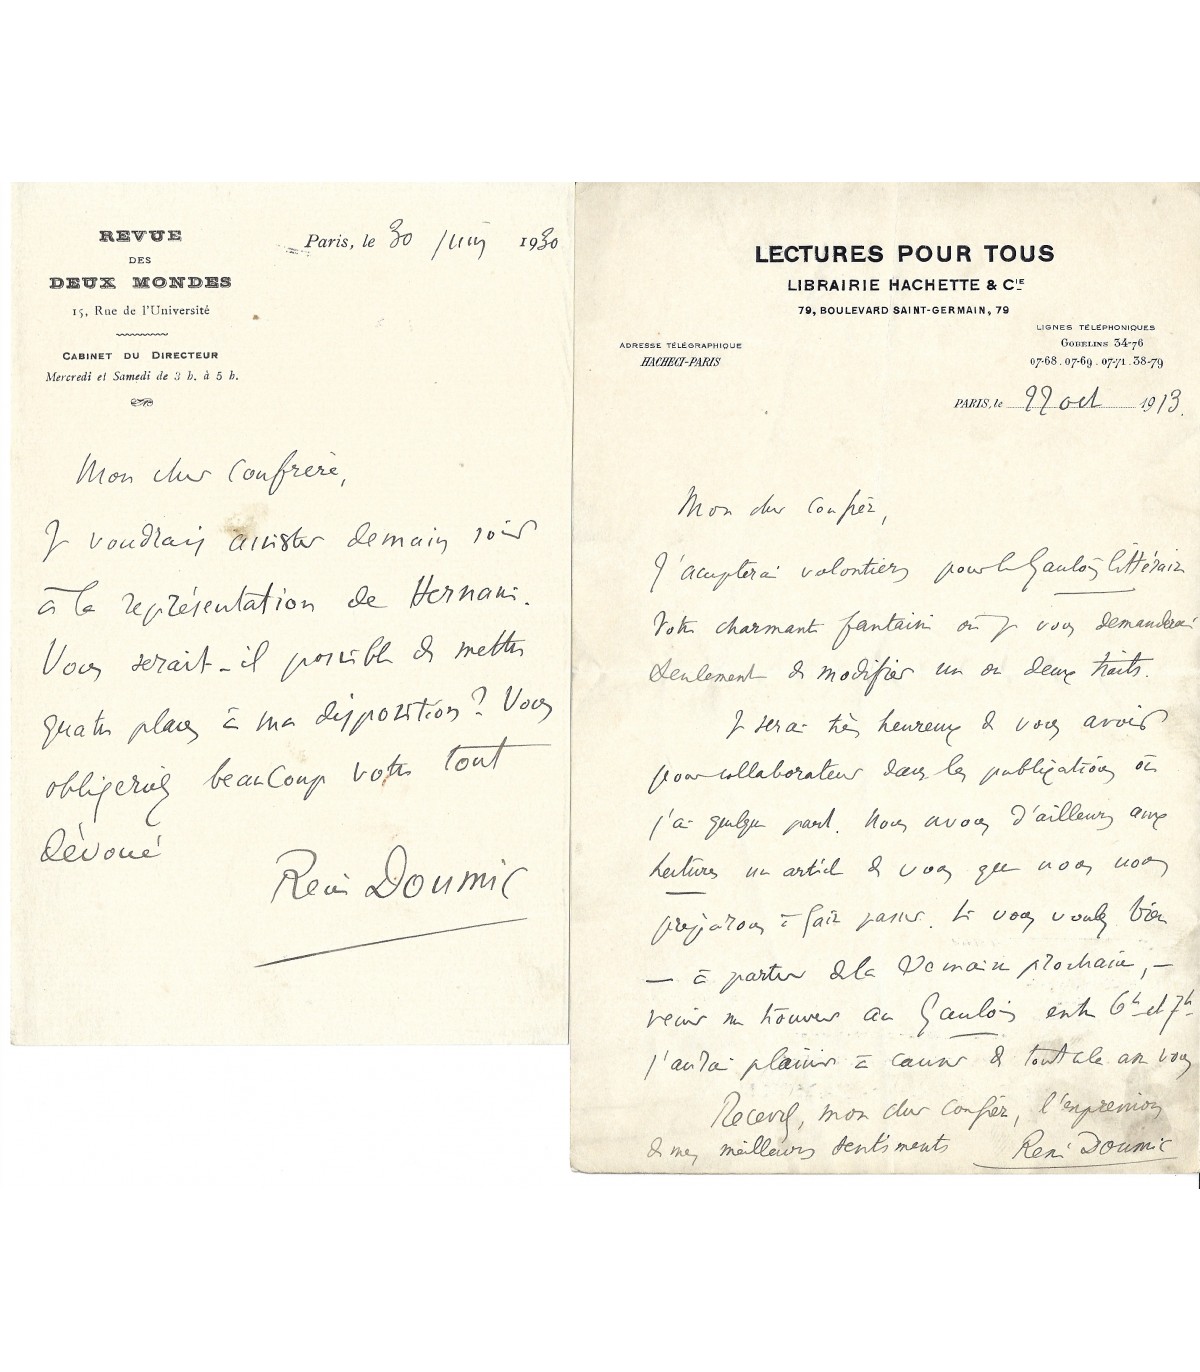 REVUE
DES
DEUX MONDES
15, Rue de l'Université
CABINET DU DIRECTEUR
Mercredi et Samedi de 3 h. à 5 h.
Paris, le 30 juin 1930
Mon cher Confrère,
Je voudrais assister demain soir
à la représentation de Hernani.
Vous serait-il possible de mettre
quatre places à ma disposition? Vous
obligeriez beaucoup votre tout
dévoué
René Doumic
LECTURES POUR TOUS
LIBRAIRIE HACHETTE & CIE
79, BOULEVARD SAINT-GERMAIN, 79
ADRESSE TÉLÉGRAPHIQUE
HACHECI-PARIS
LIGNES TÉLÉPHONIQUES
GOBELINS 34-76
07-68. 07-69. 07-71. 38-79
PARIS, le oct 1913.
Mon cher Confrère,
J'accepterai volontiers pour le Gaulois littéraire
votre charmante fantaisie où je vous demanderai
seulement de modifier un ou deux traits.
Je serai très heureux de vous avoir
pour collaborateur dans les publications où
j'ai quelque part. Nous avons d'ailleurs aux
Lectures un article de vous que nous nous
préparons à faire passer. Si vous voulez bien
— à partir de la semaine prochaine, —
venir me trouver au Gaulois entre 6h et 7h
j'aurai plaisir à causer de tout cela avec vous
Recevez, mon cher confrère, l'expression
de mes meilleurs sentiments René Doumic